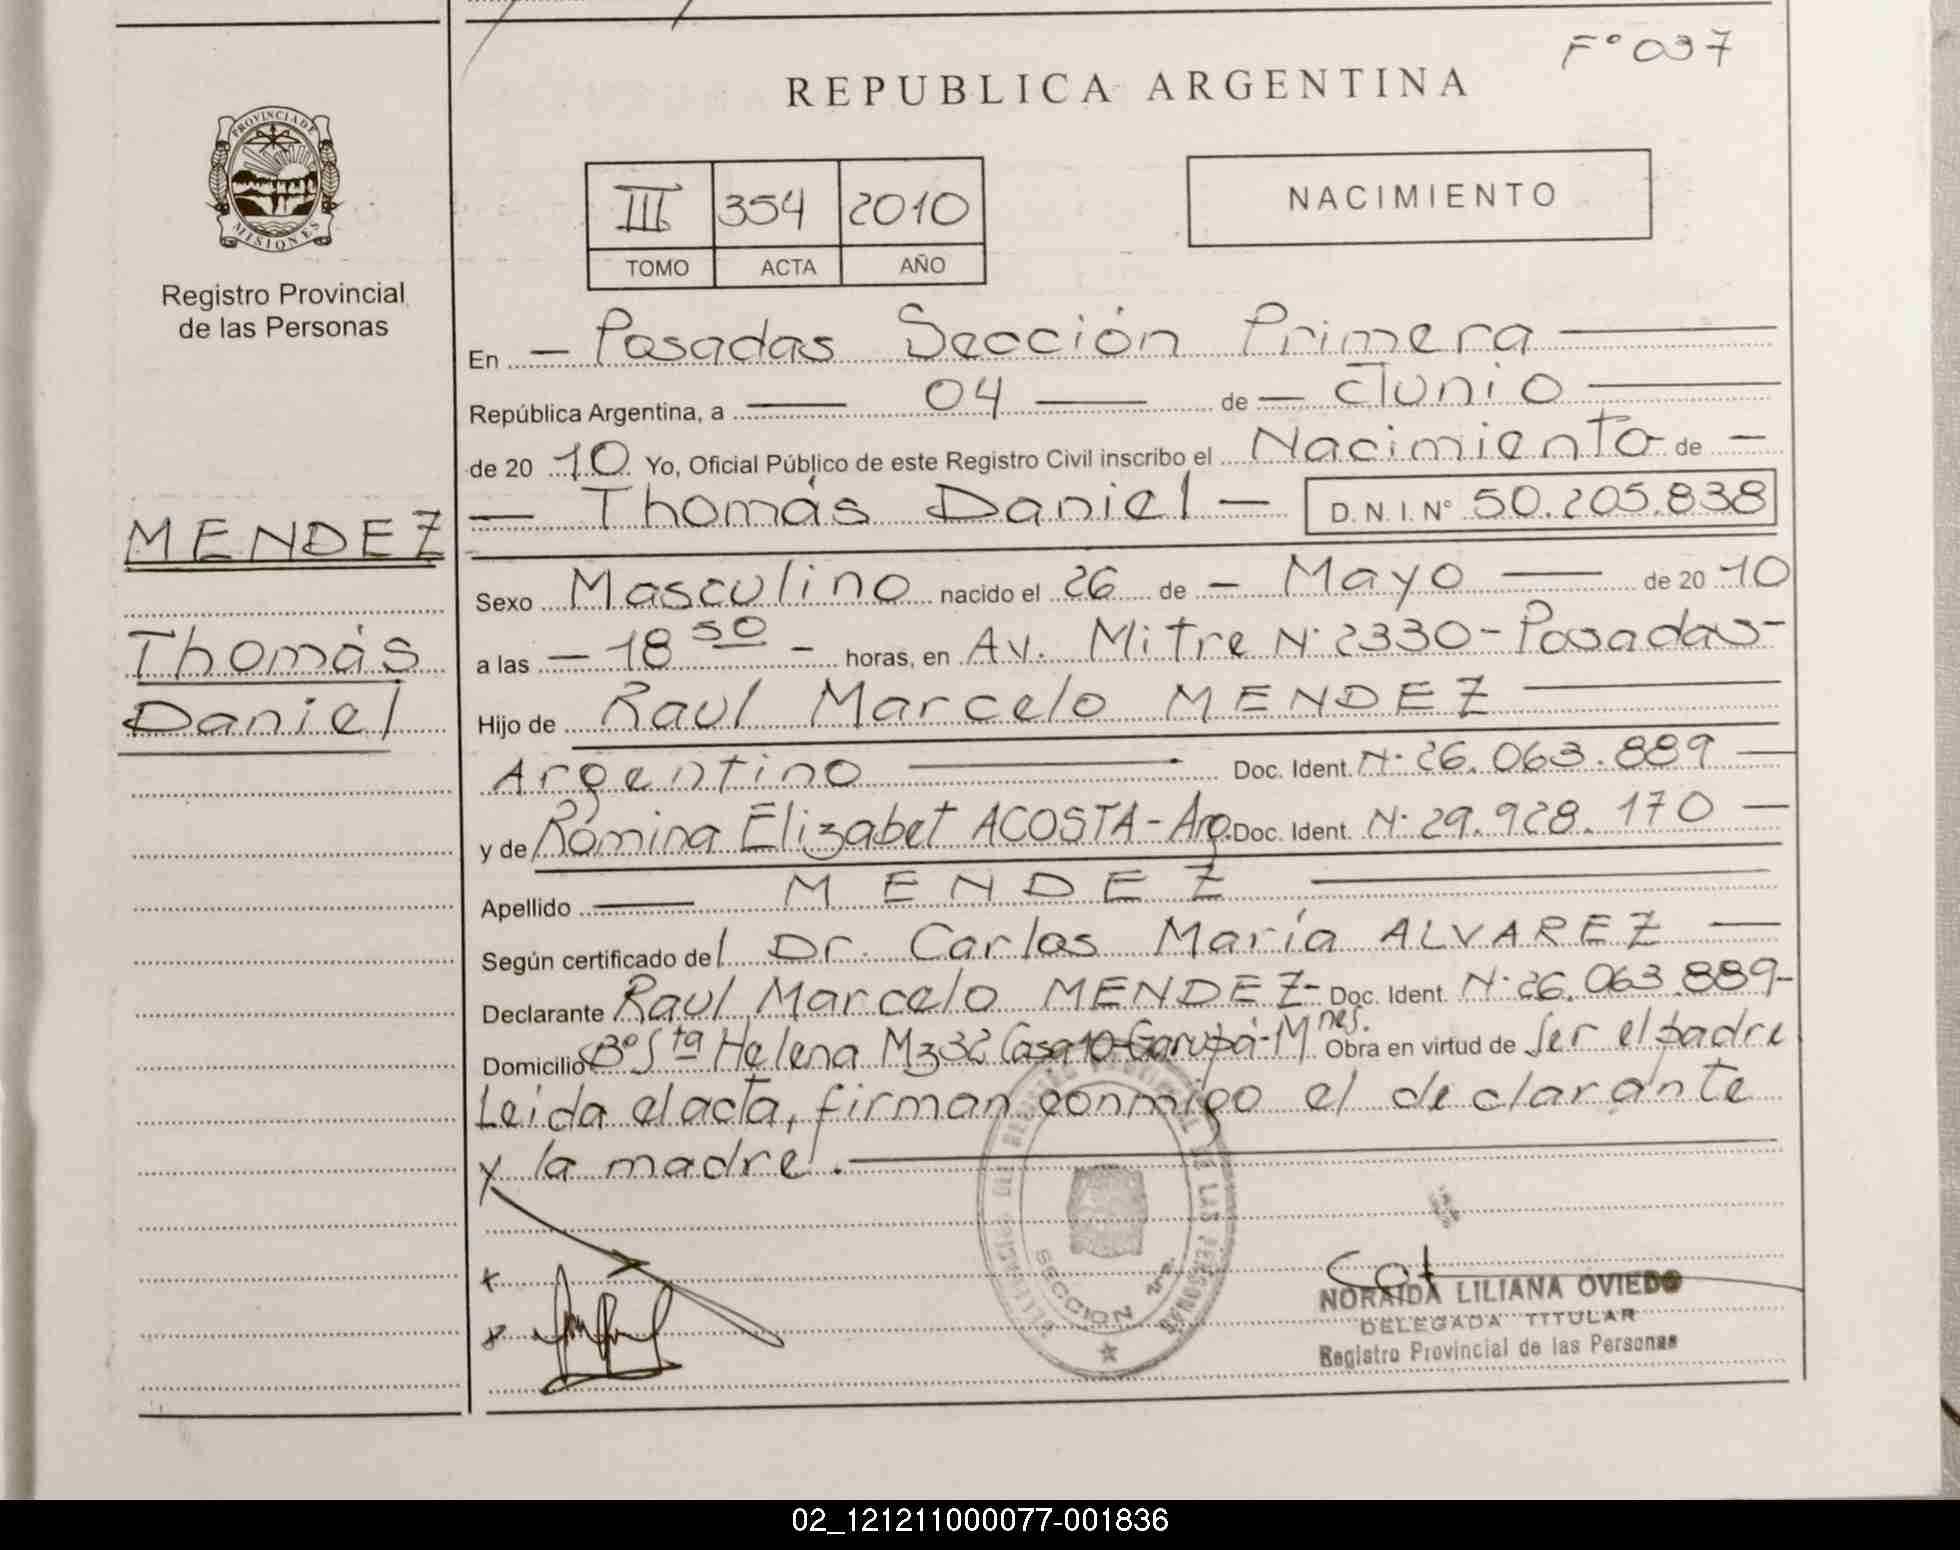 Fº 037
REPUBLICA ARGENTINA
PROVINCIA DE
MISIONES
Registro Provincial
de las Personas
III 354 2010
TOMO ACTA AÑO
NACIMIENTO
MENDEZ
Thomás
Daniel
En — Posadas Sección Primera —
República Argentina, a — 04 — de — Junio —
de 20 10 Yo, Oficial Público de este Registro Civil inscribo el Nacimiento de —
— Thomás Daniel — D.N.I. Nº 50.205.838
Sexo Masculino nacido el 26 de — Mayo — de 20 10
a las — 18 50 — horas, en Av. Mitre Nº 2330 - Posadas -
Hijo de Raul Marcelo MENDEZ —
Argentino — Doc. Ident. Nº 26.063.889 —
y de Romina Elizabet ACOSTA - Arg. Doc. Ident. Nº 29.928.170 —
Apellido — MENDEZ —
Según certificado del Dr. Carlos María ALVAREZ —
Declarante Raul Marcelo MENDEZ - Doc. Ident. Nº 26.063.889 -
Domicilio Bº Sta Helena Mz 32 Casa 10 - Garupá - Mnes. Obra en virtud de Ser el padre
Leida el acta, firman conmigo el declarante
y la madre. —
SECCION
NORAIDA LILIANA OVIEDO
DELEGADA TITULAR
Registro Provincial de las Personas
02_121211000077-001836